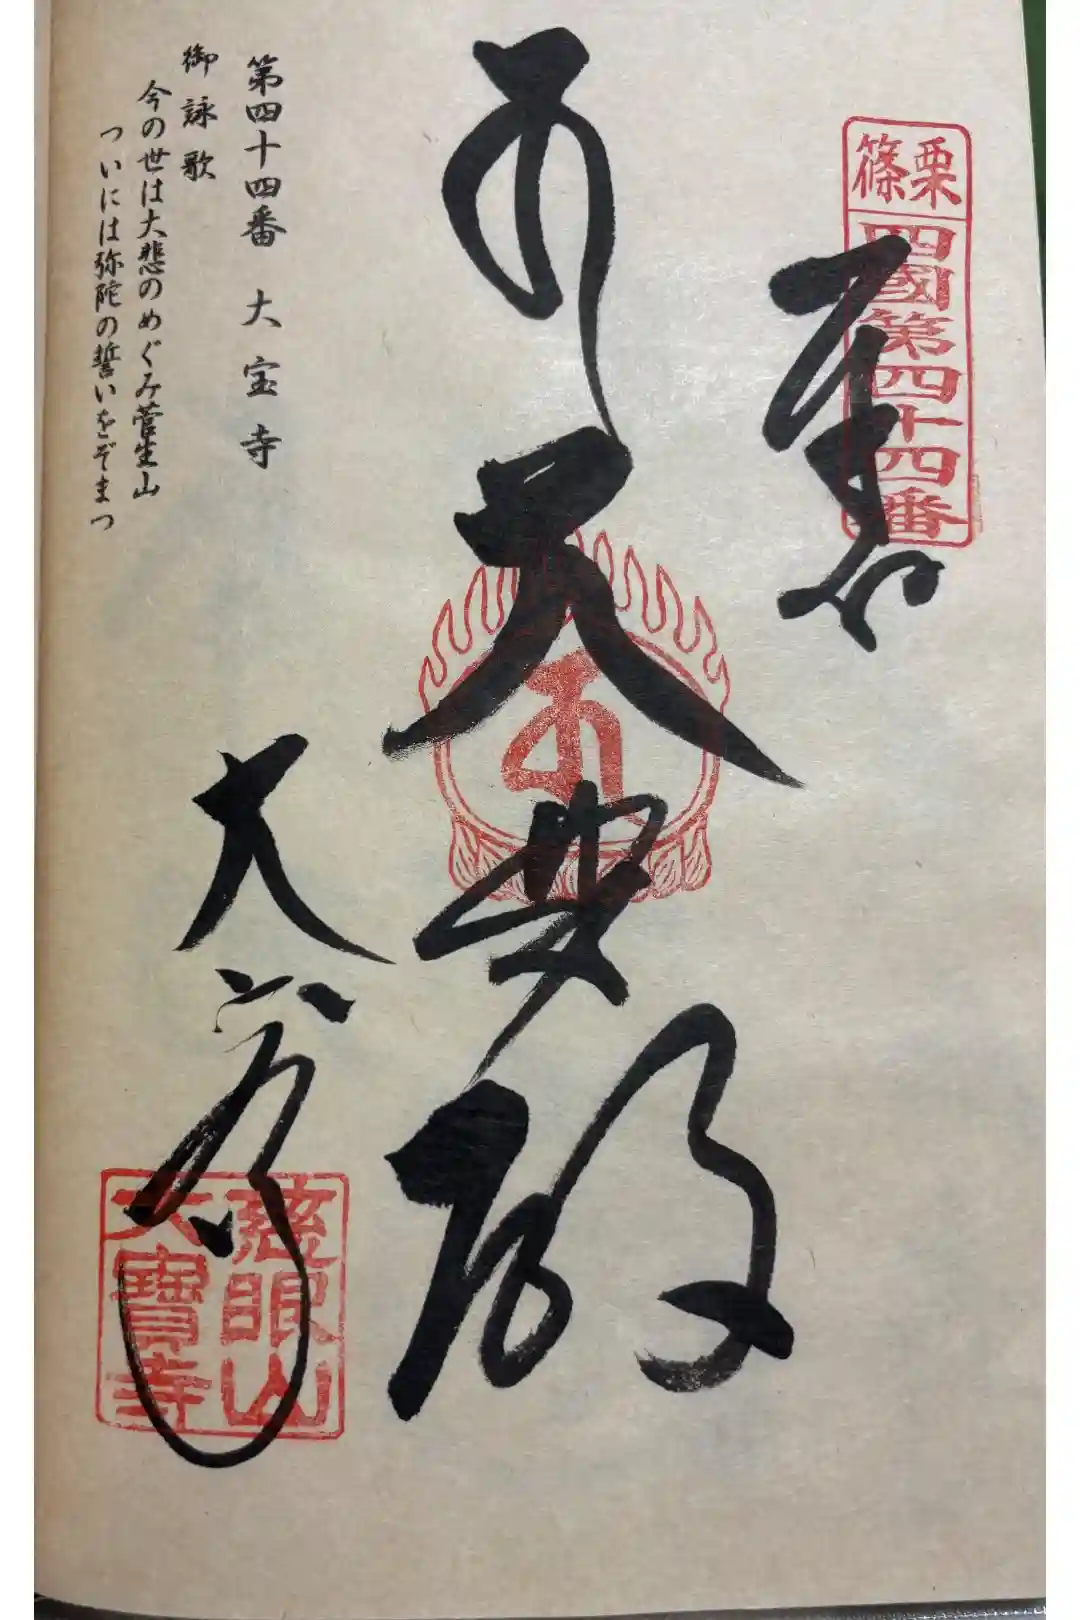 篠栗
四國第四十四番
大悲殿
大宝寺
慈眼山
大寶寺
第四十四番 大宝寺
御詠歌
今の世は大悲のめぐみ菅生山
ついには弥陀の誓いをぞまつ